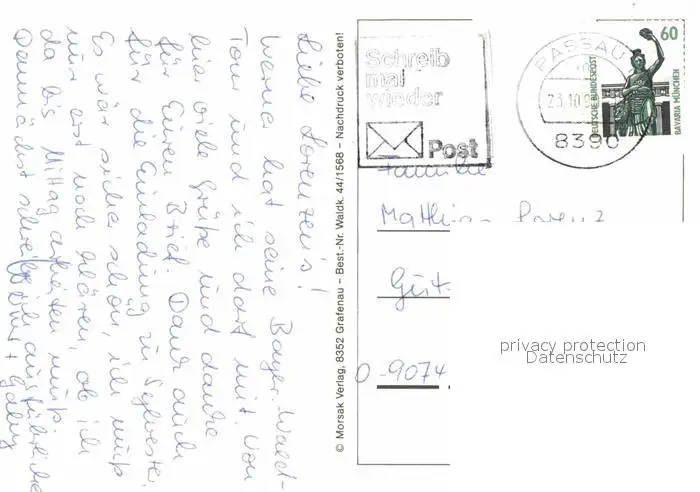 Liebe Lorenzen's!
Werner hat seine Bayer. Wald-
Tour und ich darf mit. Von
hier viele Grüße und danke
für Euren Brief. Dank auch
für die Einladung zu Sylvester.
Es wär sicher schön, ich muß
nur erst noch klären, ob ich
da bis Mittag arbeiten muß.
Demnächst schreibe ich ausführlicher
+ Gaby
© Morsak Verlag, 8352 Grafenau – Best.-Nr. Waldk. 44/1568 – Nachdruck verboten!
Schreib
mal
wieder
Post
PASSAU
23.10.9
8390
60
DEUTSCHE BUNDESPOST
BAVARIA MÜNCHEN
Familie
Matthias Lorenz
Güt.
O-9074
privacy protection
Datenschutz